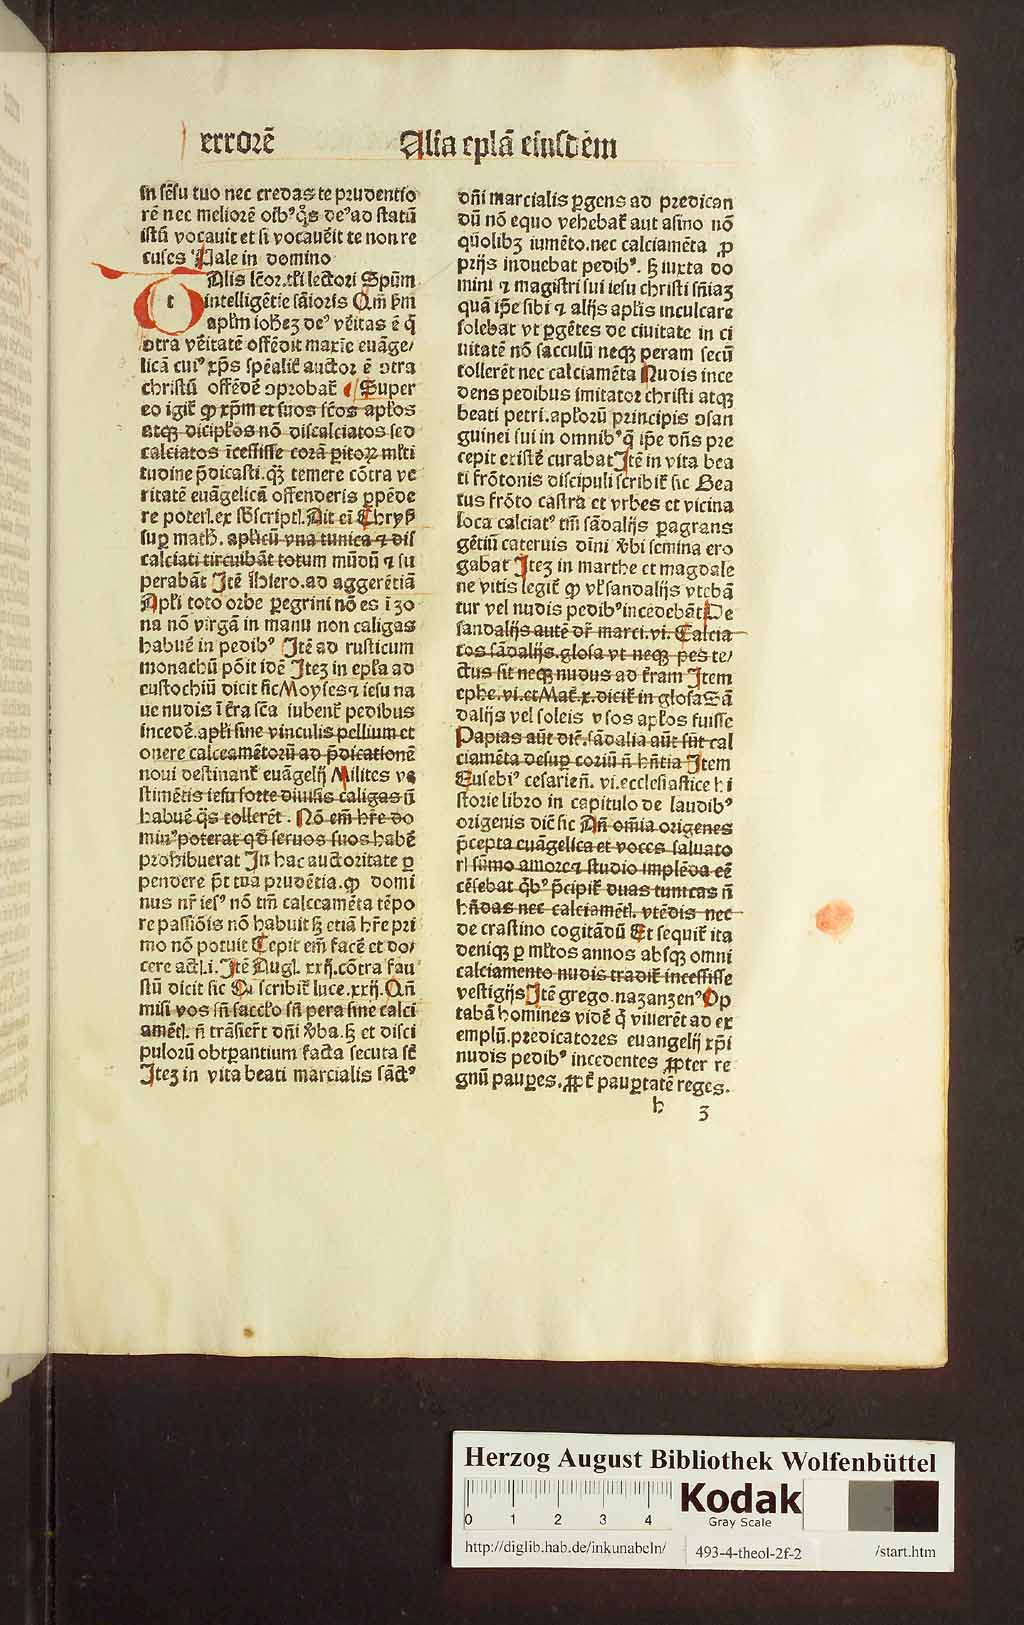 errorē Alia eplā eiusdēm
in sēsu tuo nec credas te prudentio
rē nec meliorē oībꝰ q̄s deꝰ ad statū
istū vocauit et si vocauēit te non re
cuses Vale in domino
t Alis lēor. tłi lectori Spūm
intelligētie sāioris Qm̄ bm̄
aplm̄ iohēz deꝰ vēitas ē q̄
ɔtra vēitatē offēdit maxīe euāge/
licā cuiꝰ xp̄s spēalit̄ auctor ē ɔtra
christū offēdē ɔprobat̄ Super
eo igit̄ ꝙ xp̄m et suos sc̄os apłos
atqꝫ dicipłos nō discalciatos sed
calciatos īcessisse corā pitoꝝ młti
tudine p̄dicasti. qꝫ temere cōtra ve
ritatē euāgelicā offenderis ꝑpēde
re poterꝭ. ex sb̄scriptꝭ. Ait eī Chryß
suꝑ math. aplicū vna tunica ⁊ dis
calciati circuibāt totum mūdū ⁊ su
perabāt Itē Hiero. ad aggerētiā
Apłi toto orbe ꝑegrini nō es ī zo
na nō virgā in manu non caligas
habuē in pedibꝰ Itē ad rusticum
monachū pōit idē Itez in epła ad
eustochiū dicit sic Moyses ⁊ iesu na
ue nudis ī t̄ra sc̄a iubent̄ pedibus
incedē. apłi sine vinculis pellium et
onere calceamētorū ad p̄dicationē
noui destinant̄ euāgelij Milites ve
stimētis iesu sorte diuisis caligas n̄
habuē q̄s tollerēt. Nō em̄ hr̄e do
minꝰ poterat qd̄ seruos suos habē
prohibuerat In hac auctoritate ꝑ
pendere p̄t tua prudētia. ꝙ domi
nus nr̄ iesꝰ nō tm̄ calceamēta tēpo
re passiōis nō habuit ꝫ etiā hr̄e pri
mo nō potuit Cepit em̄ facē et do/
cere actꝭ. i. Itē Augꝭ. xxij. cōtra fau
stū dicit sic Qi scribit̄ luce. xxij. Qn̄
misi vos sn̄ sacclo sn̄ pera sine calci
amētꝭ. n̄ trāsiert̄ dn̄i v̄ba. ꝫ et disci
pulorū obtꝑantium facta secuta st̄
Itez in vita beati marcialis sāctꝰ
dn̄i marcialis ꝑgens ad predican
dū nō equo vehebat̄ aut asino nō
qūolibꝫ iumēto. nec calciamēta ꝓ
prijs induebat pedibꝰ. ꝫ iuxta do
mini ⁊ magistri sui iesu christi sn̄iaꝫ
quā ip̄e sibi ⁊ alijs apłis inculcare
solebat vt ꝑgētes de ciuitate in ci
uitatē nō sacculū neqꝫ peram secū
tollerēt nec calciamēta Nudis ince
dens pedibus imitator christi atqꝫ
beati petri. apłorū principis ɔsan
guinei sui in omnibꝰ q̄ ip̄e dn̄s pre
cepit existē curabat Itē in vita bea
ti frōtonis discipuli scribit̄ sic Bea
tus frōto castra et vrbes et vicina
loca calciatꝰ tm̄ sādalijs ꝑagrans
gētiū cateruis dīni v̄bi semina ero
gabat Itez in marthe et magdale
ne vitis legit̄ ꝙ vł sandalijs vtebā
tur vel nudis pedibꝰ incedebāt De
sandalijs autē dr̄ marci. vi. Calcia
tos sādalijs. glosa vt neqꝫ pes te/
ctus sit neqꝫ nudus ad t̄ram Item
ephe. vi. et Mat̄. x. dicit̄ in glosa Sā
dalijs vel soleis vsos apłos fuisse
Papias aūt dic̄. sādalia aūt sūt cal
ciamēta desuꝑ coriū n̄ hn̄tia Item
Eusebiꝰ cesarien̄. vi. ecclesiastice hi
storie libro in capitulo de laudibꝰ
origenis dic̄ sic Añ om̄ia origenes
p̄cepta euāgelica et voces saluato
rꝭ sūmo amore ⁊ studio implēda eē
cēsebat q̄bꝰ p̄cipit̄ duas tunicas n̄
hn̄das nec calciamētꝭ. vtēdis nec
de crastino cogitādū Et sequit̄ ita
deniqꝫ ꝑ młtos annos absqꝫ omni
calciamento nudis tradit̄ incessisse
vestigijs Itē grego. nazanzenꝰ Op
tabā homines vidē q̄ viuerēt ad ex
emplū. predicatores euangelij xp̄i
nudis pedibꝰ incedentes ꝓpter re
gnū pauꝑes. ꝓpt̄ pauꝑtatē reges.
h 3
Herzog August Bibliothek Wolfenbüttel
0 1 2 3 4
Kodak
Gray Scale
http://diglib.hab.de/inkunabeln/ 493-4-theol-2f-2 /start.htm